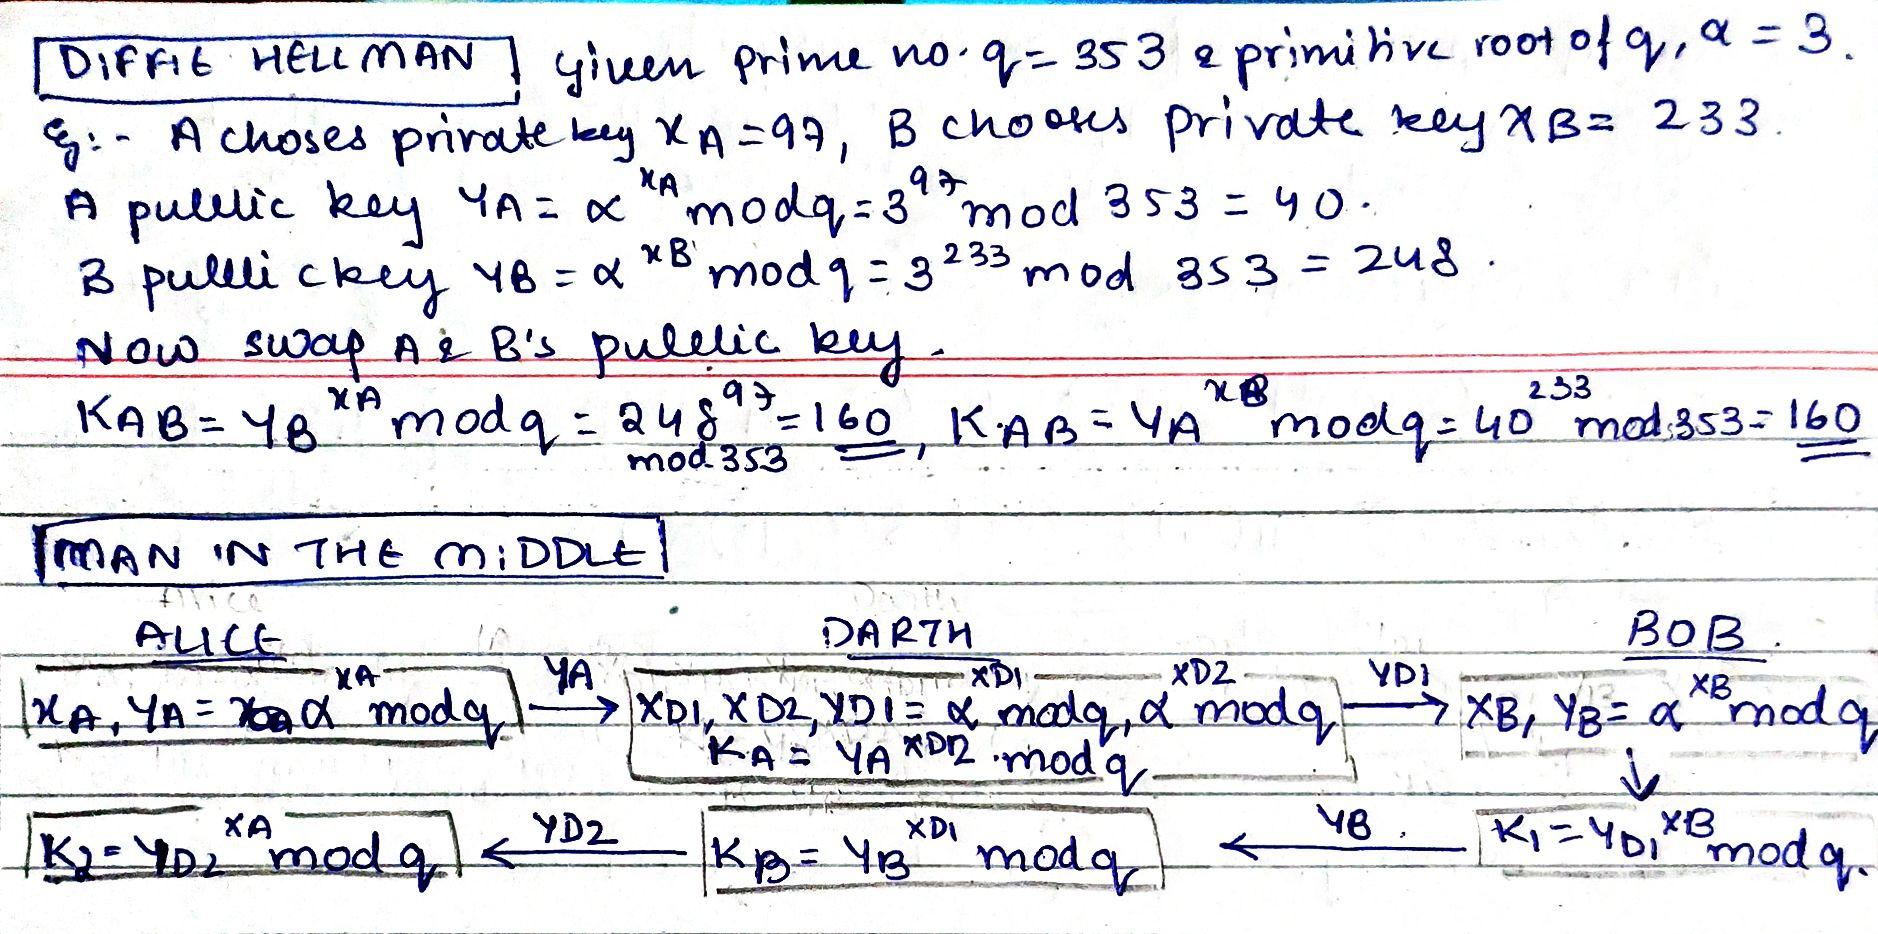 DIFFIE HELLMAN given prime no. q = 353 & primitive root of q, α = 3.
Eg:- A choses private key XA = 97, B chooses private key XB = 233.
A public key YA = α^XA mod q = 3^97 mod 353 = 40.
B public key YB = α^XB mod q = 3^233 mod 353 = 248.
Now swap A & B's public key.
KAB = YB^XA mod q = 248^97 mod 353 = 160, KAB = YA^XB mod q = 40^233 mod 353 = 160
MAN IN THE MIDDLE
ALICE DARTH BOB.
XA, YA = α^XA mod q YA → XD1, XD2, YD1 = α^XD1 mod q, α^XD2 mod q YD1 → XB, YB = α^XB mod q
KA = YA^XD2 . mod q ↓
K2 = YD2^XA mod q ← YD2 KB = YB^XD1 mod q ← YB. K1 = YD1^XB mod q.